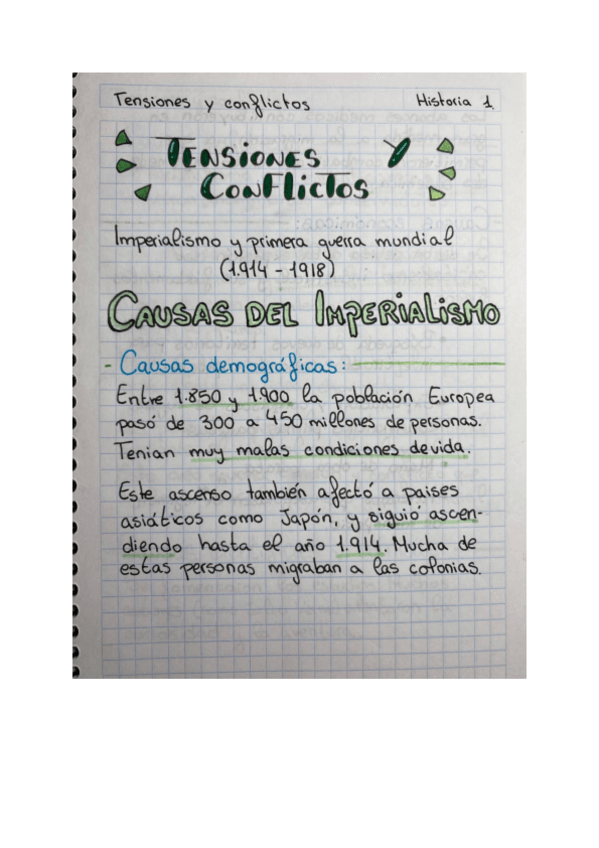 Tensiones y conflictos
Historia 1.
TENSIONES Y
CONFLICTOS
Imperialismo y primera guerra mundial
(1.914 - 1918)
CAUSAS DEL IMPERIALISMO
- Causas demográficas:
Entre 1.850 y 1.900 la población Europea
pasó de 300 a 450 millones de personas.
Tenian muy malas condiciones de vida.
Este ascenso también afectó a paises
asiáticos como Japón, y siguió ascen-
diendo hasta el año 1.914. Mucha de
estas personas migraban a las colonias.